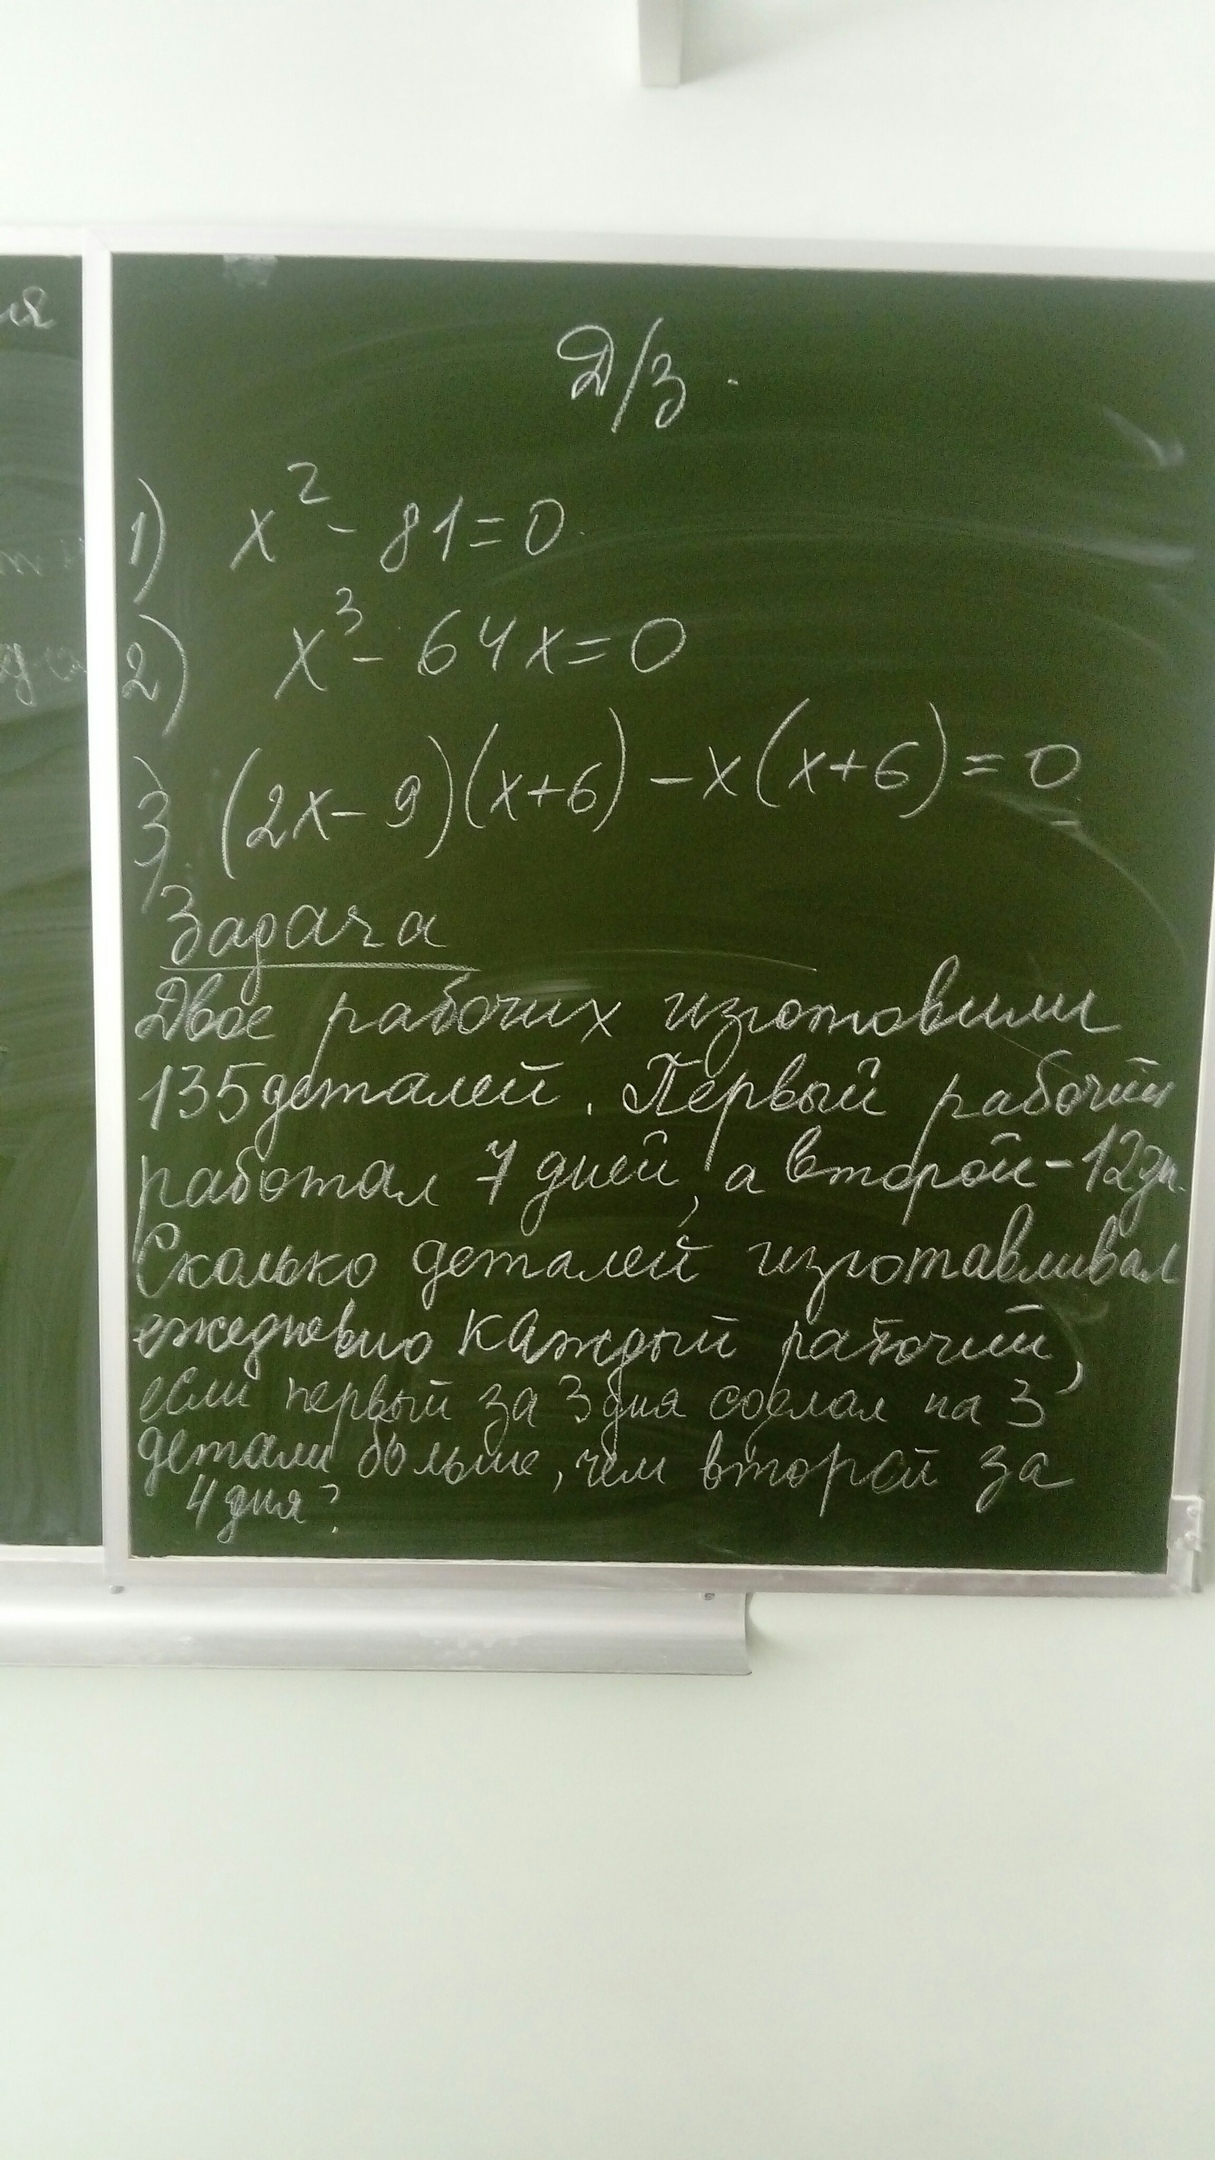 Д/з.
1) x² - 81 = 0.
2) x³ - 64x = 0
3) (2x - 9)(x+6) - x(x+6) = 0
Задача
Двое рабочих изготовили
135 деталей. Первый рабочий
работал 7 дней, а второй - 12 дн.
Сколько деталей изготавливал
ежедневно каждый рабочий,
если первый за 3 дня сделал на 3
детали больше, чем второй за
4 дня?